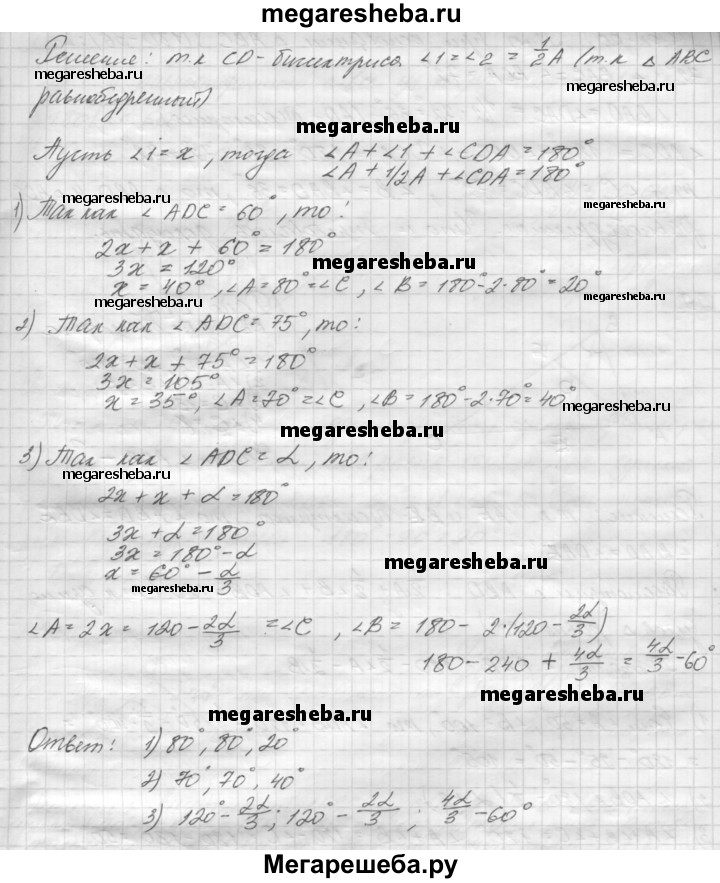 megaresheba.ru
Решение: т.к CD - биссектриса ∠1=∠2 = 1/2 A (т.к △ ABC
megaresheba.ru
megaresheba.ru
равнобедренный)
megaresheba.ru
Пусть ∠1 = x, тогда ∠A + ∠1 + ∠CDA = 180°
∠A + 1/2A + ∠CDA = 180°
megaresheba.ru
megaresheba.ru
1) Так как ∠ADC = 60°, то:
2x + x + 60° = 180°
megaresheba.ru
3x = 120°
x = 40°, ∠A = 80° = ∠C, ∠B = 180° - 2·80° = 20°
megaresheba.ru
2) Так как ∠ADC = 75°, то:
2x + x + 75° = 180°
megaresheba.ru
3x = 105°
x = 35°, ∠A = 70° = ∠C, ∠B = 180° - 2·70° = 40°
megaresheba.ru
megaresheba.ru
3) Так как ∠ADC = α, то:
megaresheba.ru
2x + x + α = 180°
3x + α = 180°
3x = 180° - α
megaresheba.ru
x = 60° - α/3
megaresheba.ru
∠A = 2x = 120 - 2α/3 = ∠C, ∠B = 180 - 2·(120 - 2α/3)
180 - 240 + 4α/3 = 4α/3 - 60°
megaresheba.ru
megaresheba.ru
Ответ: 1) 80°, 80°, 20°
2) 70°, 70°, 40°
3) 120° - 2α/3; 120° - 2α/3; 4α/3 - 60°
Мегарешеба.ру